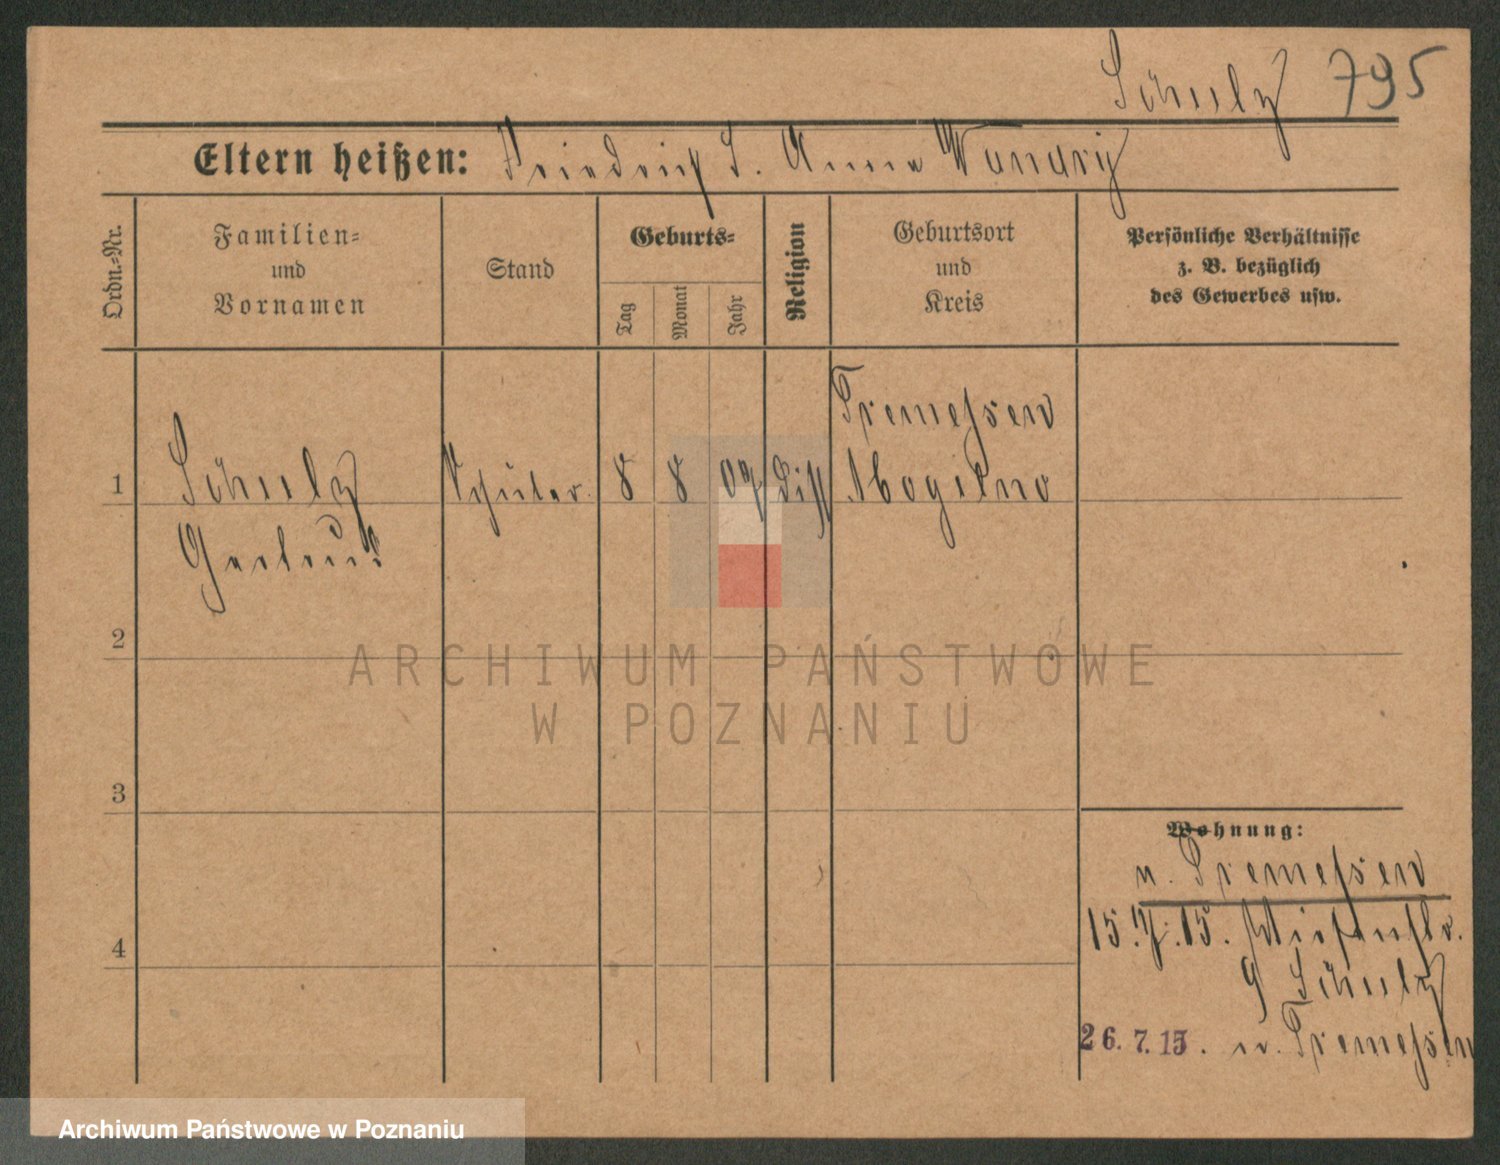 Schulz 795
Eltern heißen: Friedrich S. Anna
Ordn.-Nr.
Familien-
und
Vornamen
Stand
Geburts-
Tag
Monat
Jahr
Religion
Geburtsort
und
Kreis
Persönliche Verhältnisse
z. B. bezüglich
des Gewerbes usw.
Tremessen
1 Schulz Schüler. 8 8 09 diss Mogilno
Gertrud
2
ARCHIWUM PAŃSTWOWE
W POZNANIU
3
Wohnung:
n. Tremessen
4
15.7.15.
9 Schulz
26.7.15. n. Tremessen
Archiwum Państwowe w Poznaniu